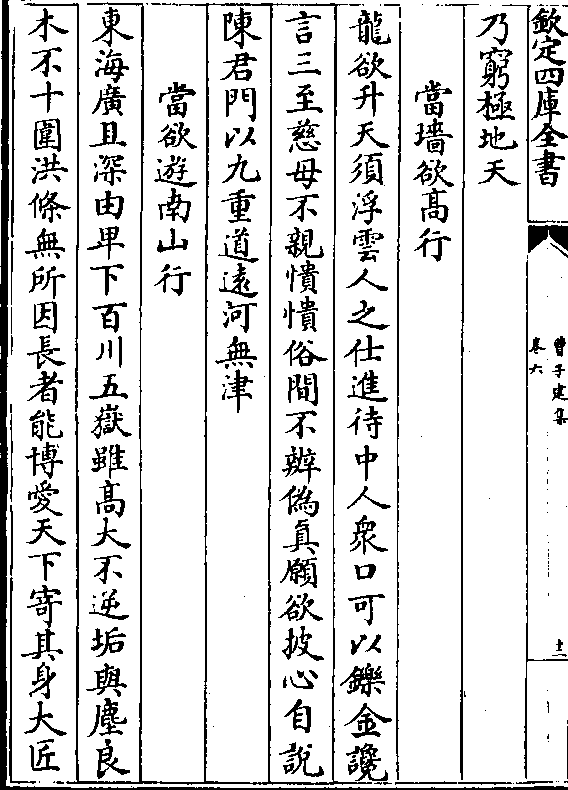 欽定四庫全書
曹子建集
卷六
十二
乃窮極地天
當墻欲髙行
龍欲升天須浮雲人之仕進待中人衆口可以鑠金讒
言三至慈母不親憒憒俗間不辨偽真願欲披心自說
陳君門以九重道逺河無津
當欲遊南山行
東海廣且深由卑下百川五嶽雖髙大不逆垢與塵良
木不十圍洪條無所因長者能博愛天下寄其身大匠